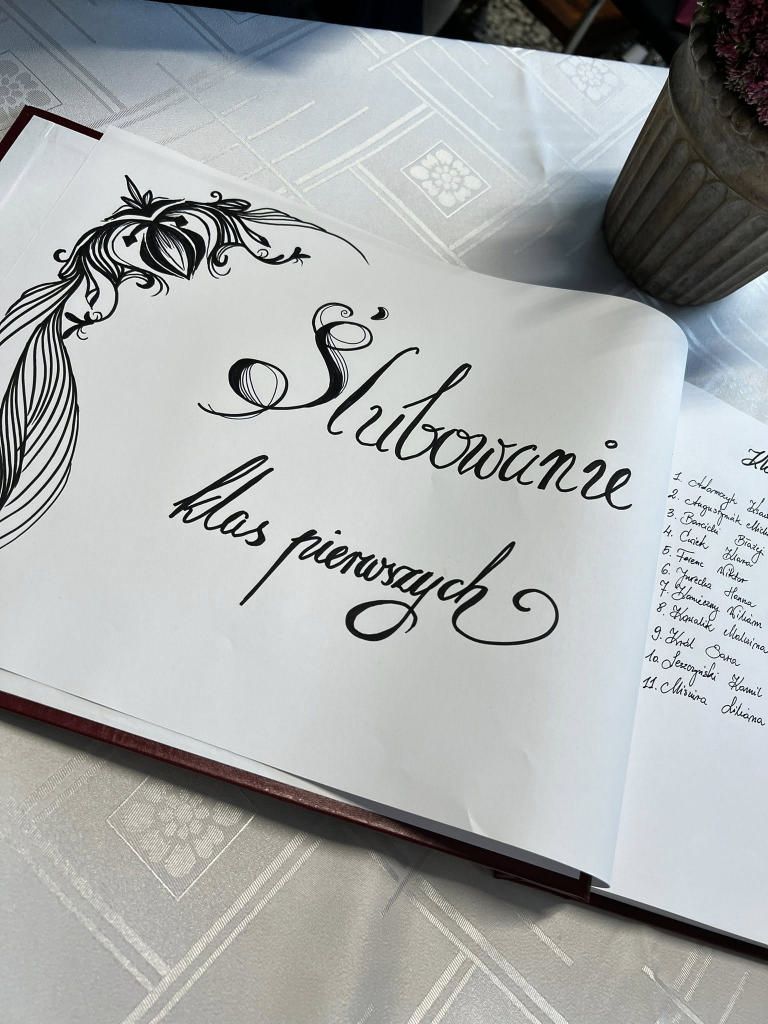 Ślubowanie
klas pierwszych
1. Adamczyk
2. Augustyniak
3. Barcicki Błażej
4. Ćwiek Klara
5. Ferenc Wiktor
6. Jurecka Hanna
7. Konieczny Wiliam
8. Kowalik Malwina
9. Król Sara
10. Leszczyński Kamil
11. Misiura Liliana